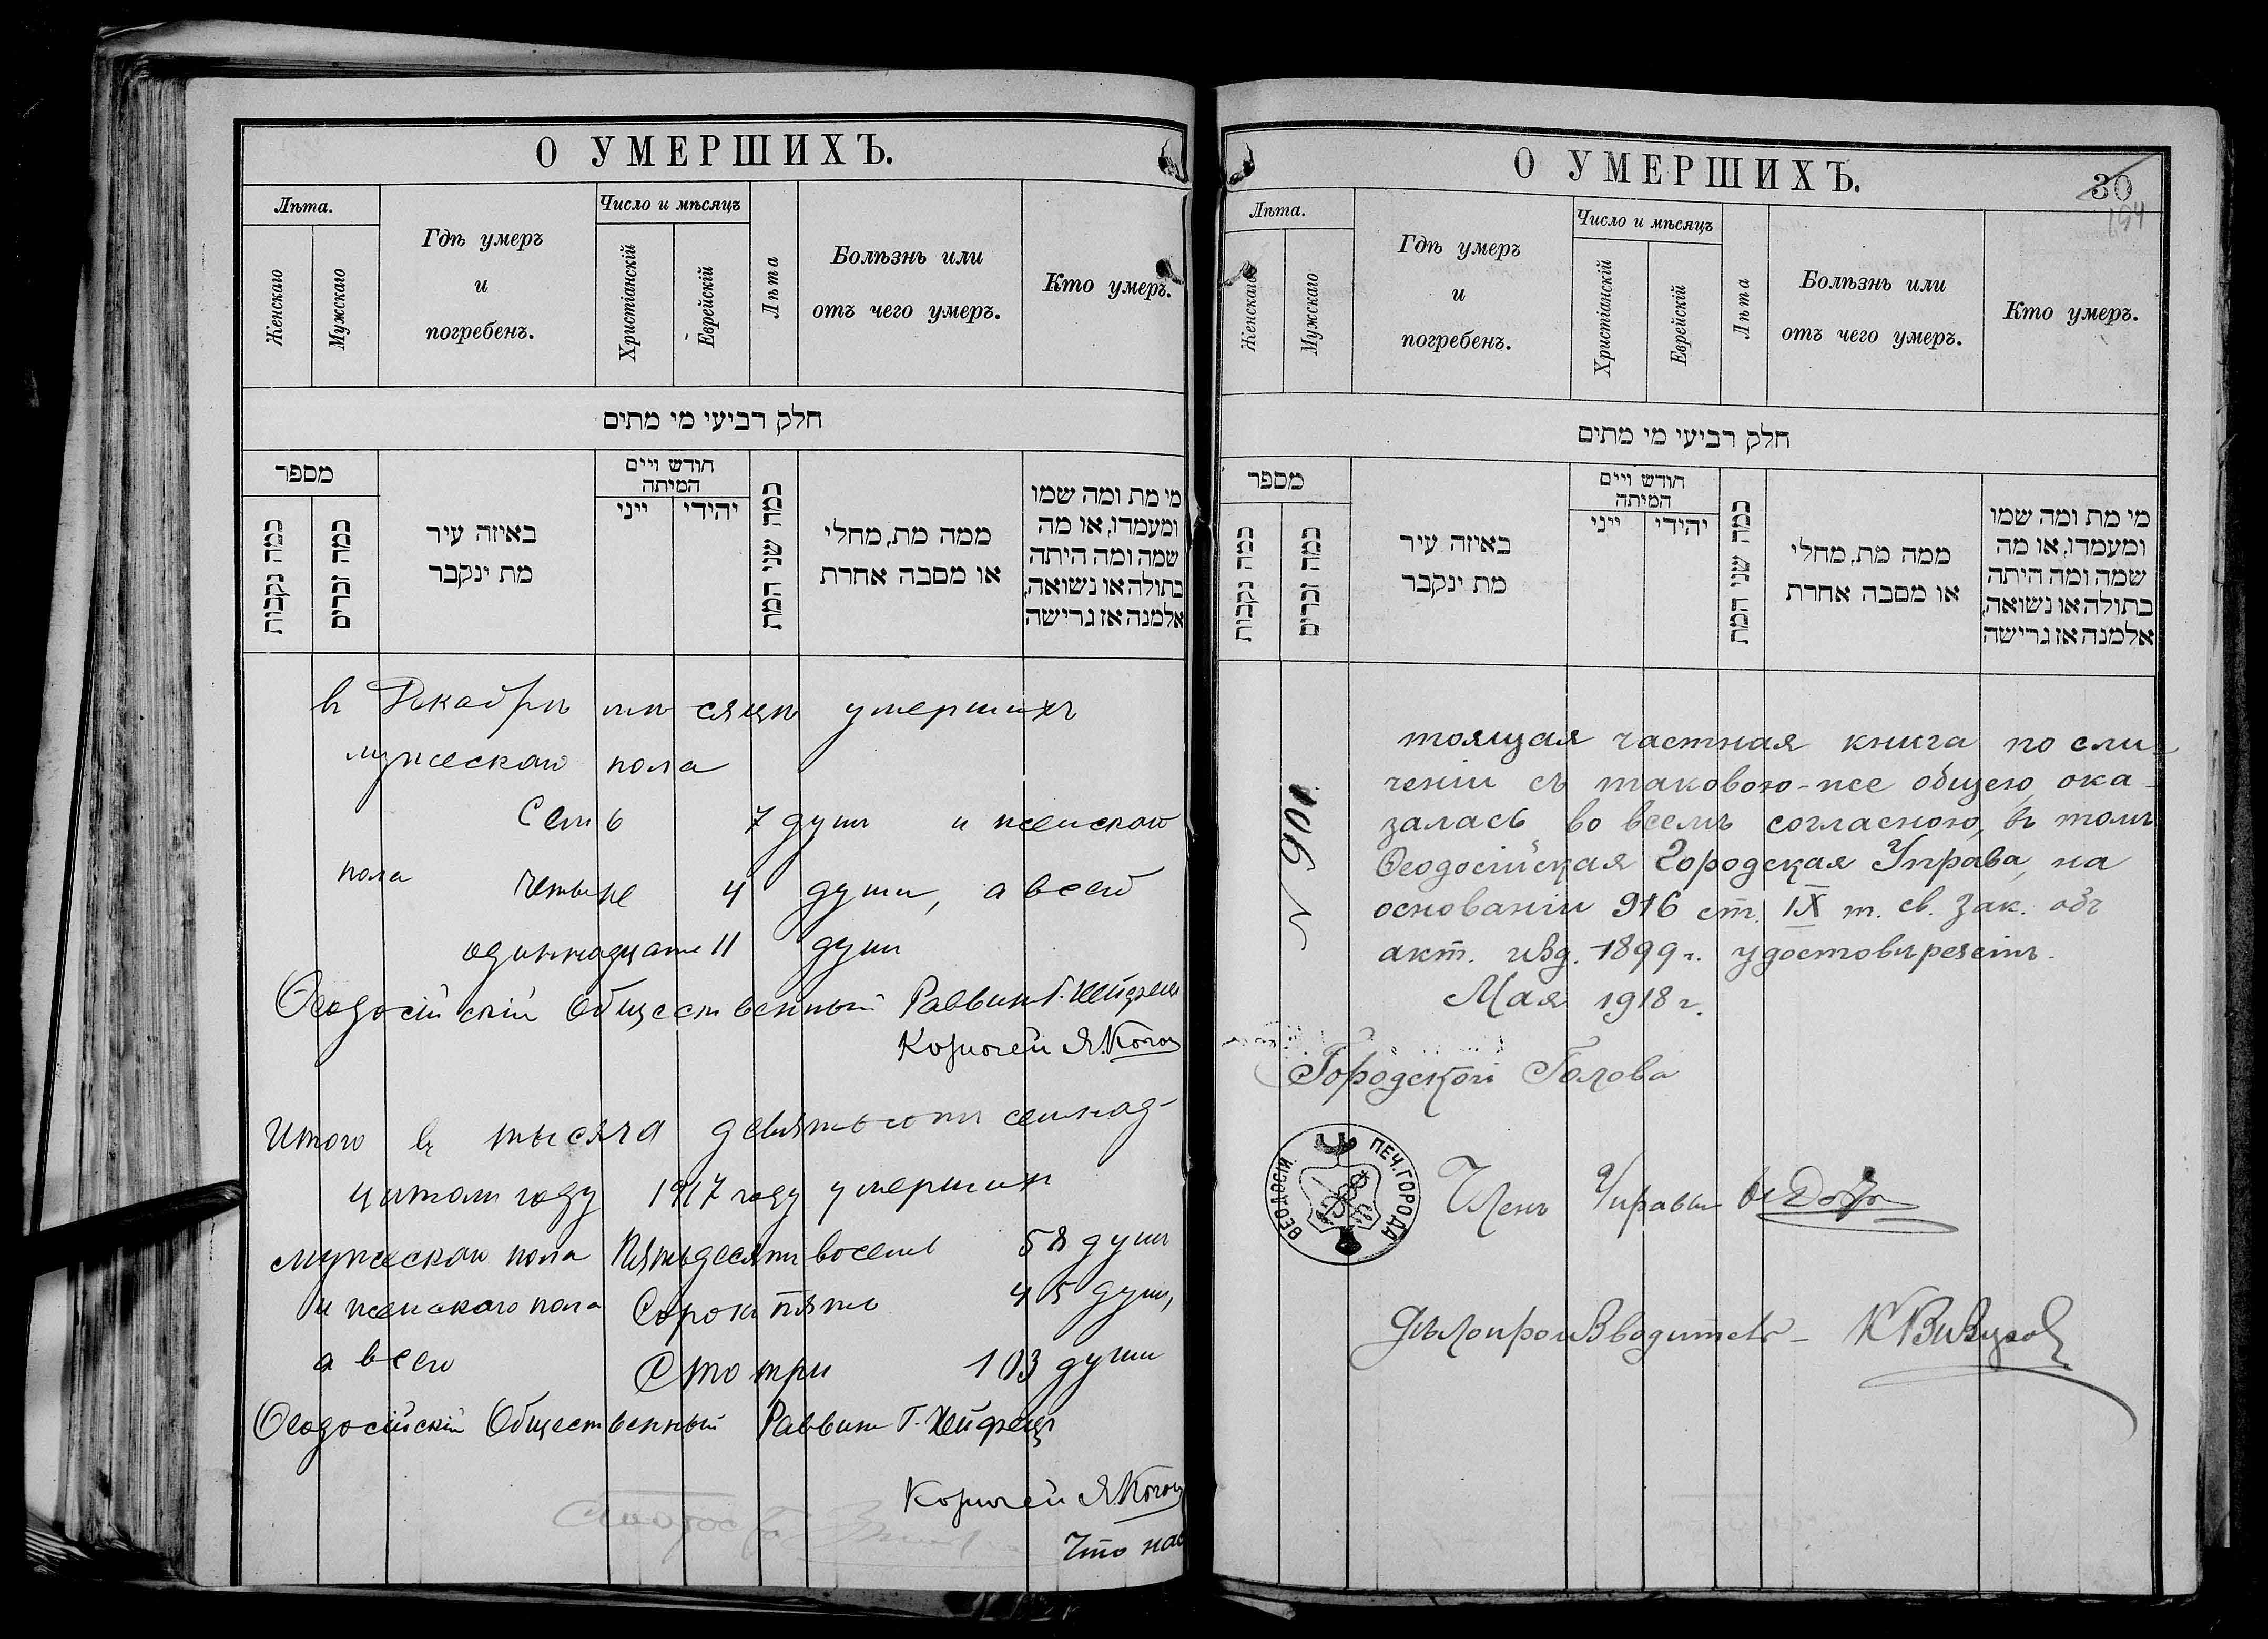 О УМЕРШИХЪ.
Лѣта.
Женскаго
Мужскаго
Гдѣ умеръ
и
погребенъ.
Число и мѣсяцъ
Христіанскій
Еврейскій
Лѣта
Болѣзнь или
отъ чего умеръ.
Кто умеръ.
חלק רביעי מי מתים
מספר
כמה נקבות
כמה זכרים
באיזה עיר
מת ינקבר
חודש ויים
המיתה
ייני
יהודי
כמה שני המת
ממה מת, מחלי
או מסבה אחרת
מי מת ומה שמו
ומעמדו, או מה
שמה ומה היתה
בתולה או נשואה,
אלמנה אז גרישה
въ Декабрѣ мѣсяцѣ умершихъ
мужескаго пола
Семь 7 душъ и женскаго
пола четыре 4 души, а всего
одиннадцать 11 душъ
Ѳеодосійскій Общественный Раввинъ Г. Хейфецъ
Казначей Я. Коган
Итого въ тысяча девятьсотъ семнад-
цатомъ году 1917 году умершихъ
мужескаго пола Пятьдесятъ восемь 58 душъ
и женскаго пола Сорокъ пять 45 душъ,
а всего Сто три 103 души
Ѳеодосійскій Общественный Раввинъ Г. Хейфецъ
Казначей Я Коган
Что нас
О УМЕРШИХЪ.
30
194
Лѣта.
Женскаго
Мужскаго
Гдѣ умеръ
и
погребенъ.
Число и мѣсяцъ
Христіанскій
Еврейскій
Лѣта
Болѣзнь или
отъ чего умеръ.
Кто умеръ.
חלק רביעי מי מתים
מספר
כמה נקבות
כמה זכרים
באיזה עיר
מת ינקבר
חודש ויים
המיתה
ייני
יהודי
כמה שני המת
ממה מת, מחלי
או מסבה אחרת
מי מת ומה שמו
ומעמדו, או מה
שמה ומה היתה
בתולה או נשואה,
אלמנה אז גרישה
тоящая частная книга по сли-
ченіи съ таковою-же общею, ока-
залась во всемъ согласною, въ томъ
Ѳеодосійская Городская Управа, на
основаніи 916 ст. IX т. св. Зак. объ
акт. изд. 1899 г. удостовѣряетъ.
Мая 1918 г.
Городской Голова
ПЕЧ. ГОРОДА ѲЕОДОСІИ
Членъ Управы
Дѣлопроизводитель